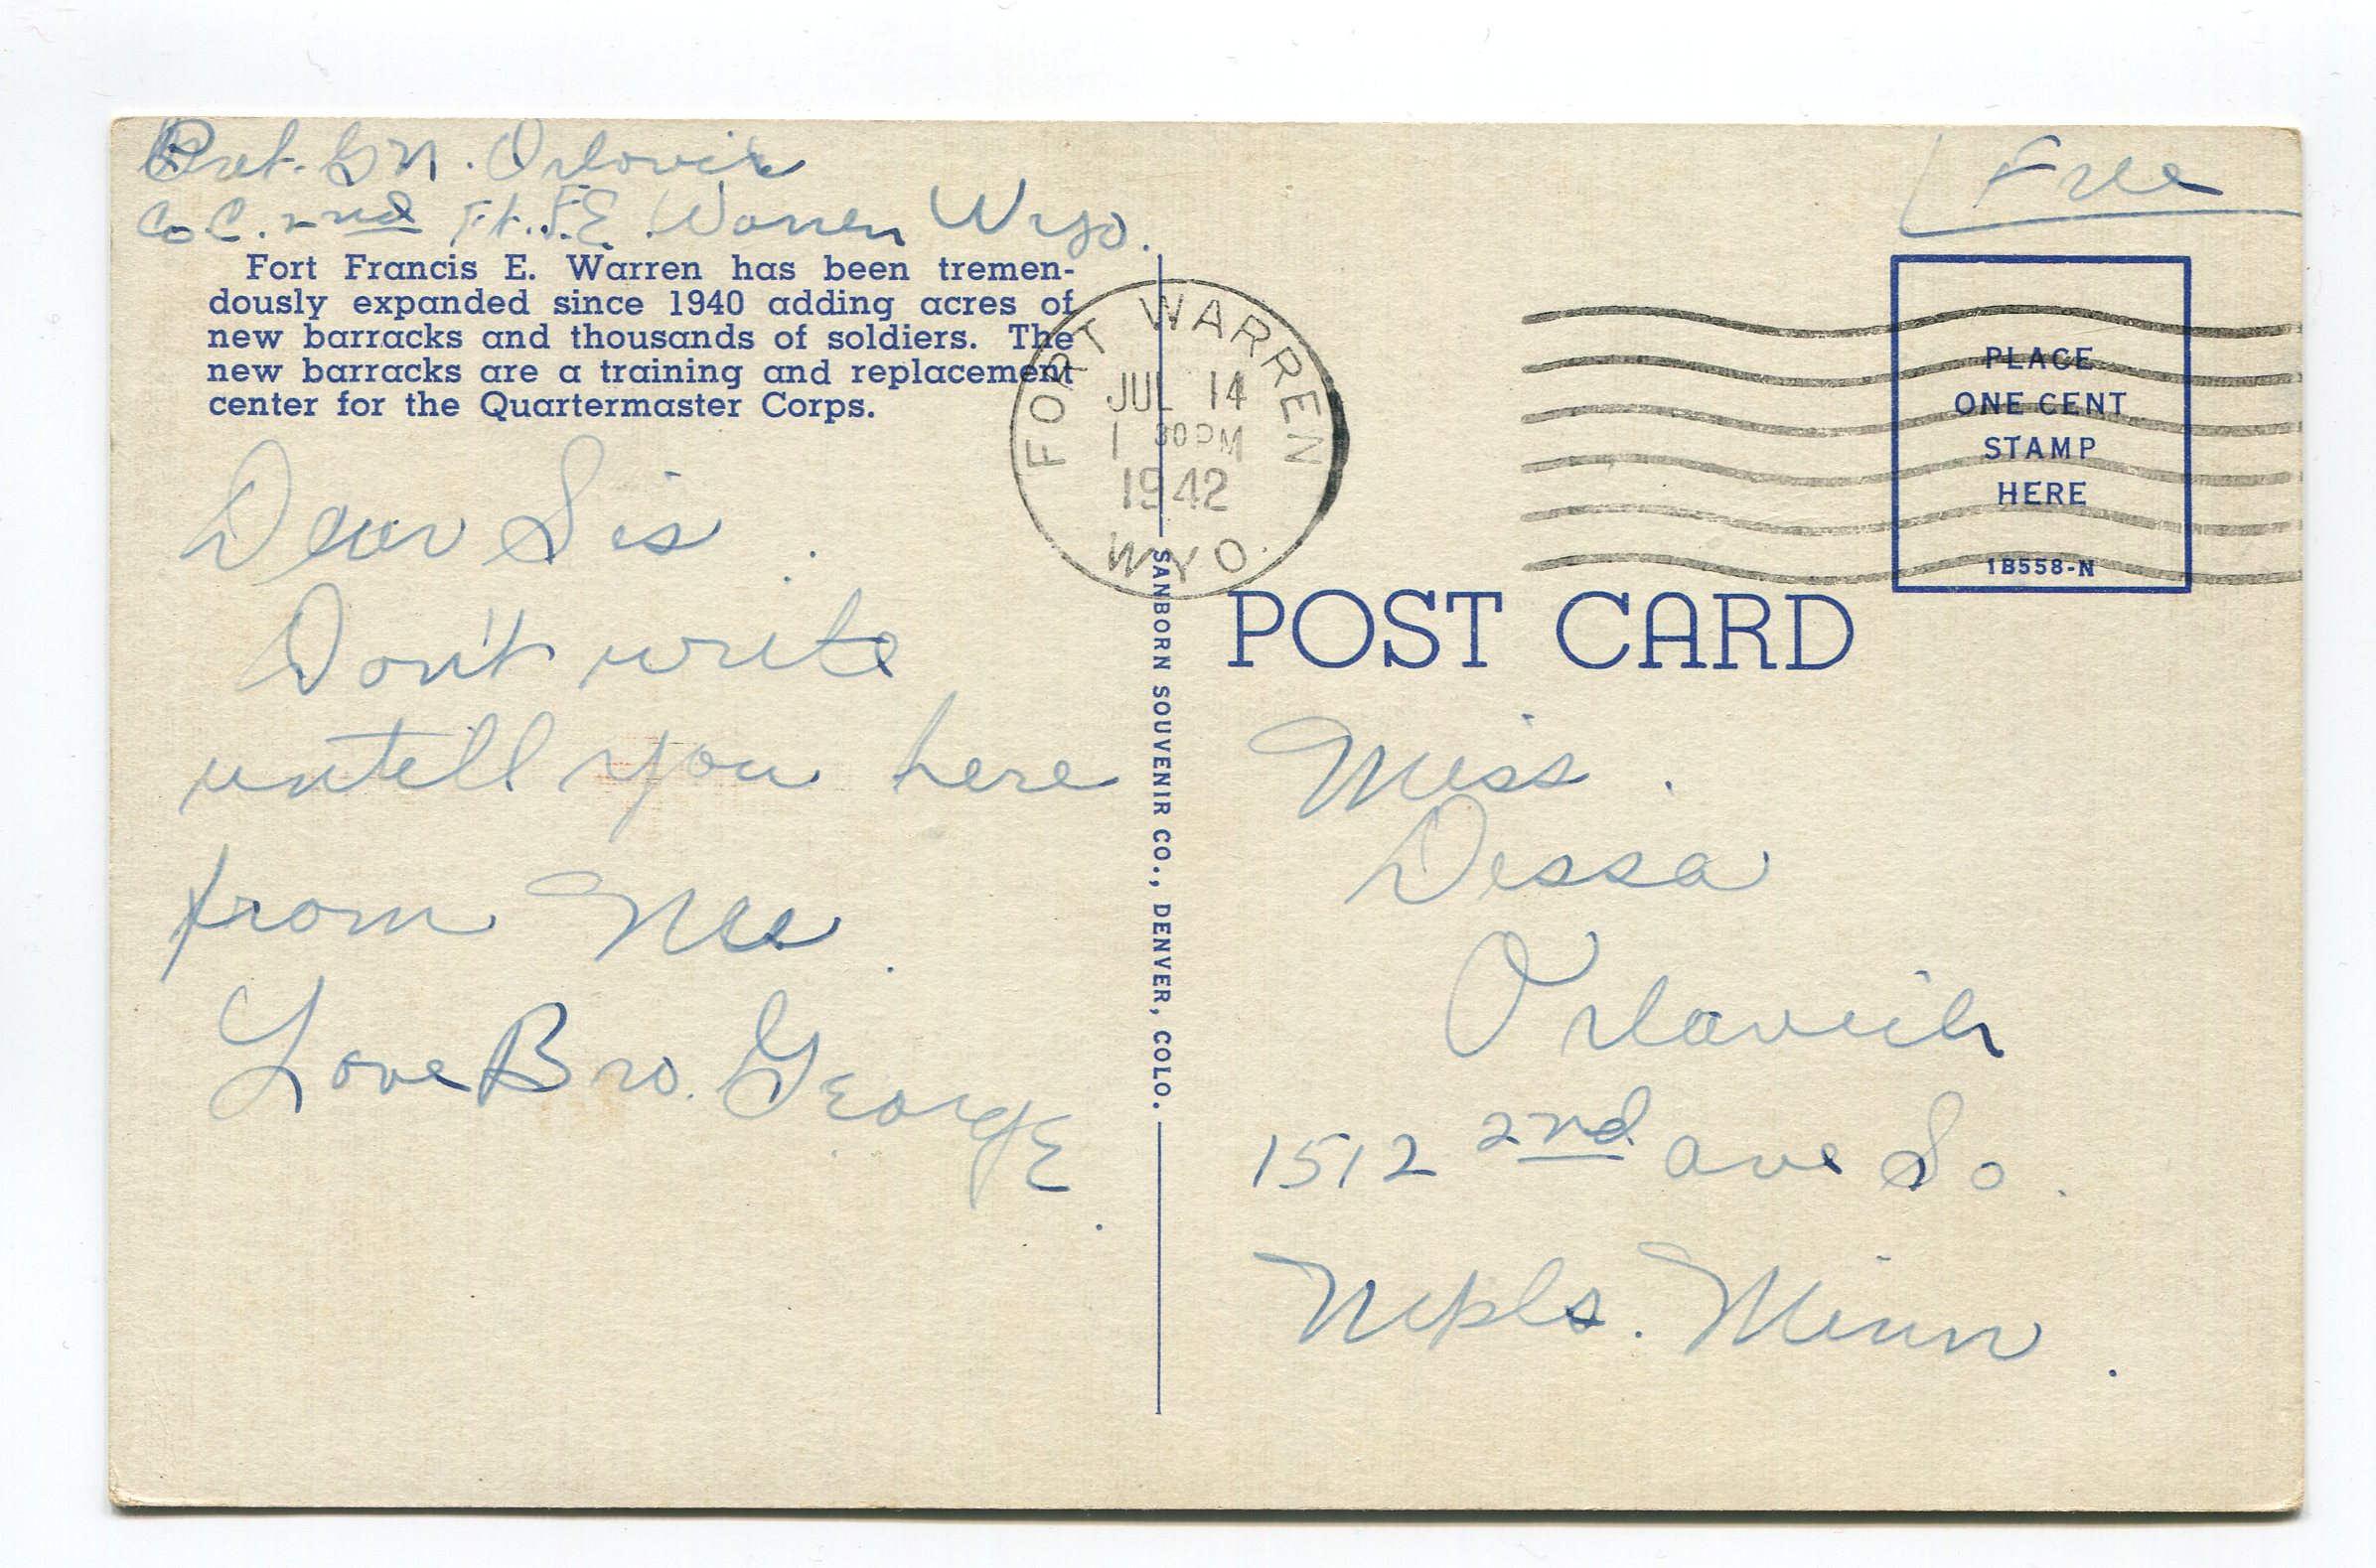 Pvt. G N. Orlovich
Co C. 2nd Ft. F.E. Warren Wyo.
Free
Fort Francis E. Warren has been tremen-
dously expanded since 1940 adding acres of
new barracks and thousands of soldiers. The
new barracks are a training and replacement
center for the Quartermaster Corps.
FORT WARREN
JUL 14
1 30 PM
1942
WYO.
PLACE
ONE CENT
STAMP
HERE
1B558-N
POST CARD
SANBORN SOUVENIR CO., DENVER, COLO.
Dear Sis.
Don't write
untill you here
from Me.
Love Bro. George.
Miss.
Dessa
Orlovich
1512 2nd ave So.
Mpls. Minn.